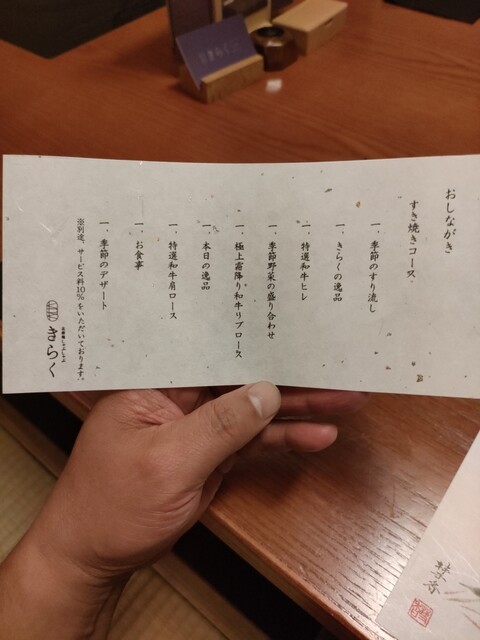 おしながき
すき焼きコース
一、季節のすり流し
一、きらくの逸品
一、特選和牛ヒレ
一、季節野菜の盛り合わせ
一、極上霜降り和牛リブロース
一、本日の逸品
一、特選和牛肩ロース
一、お食事
一、季節のデザート
※別途、サービス料10%をいただいております。
きらく
きらく